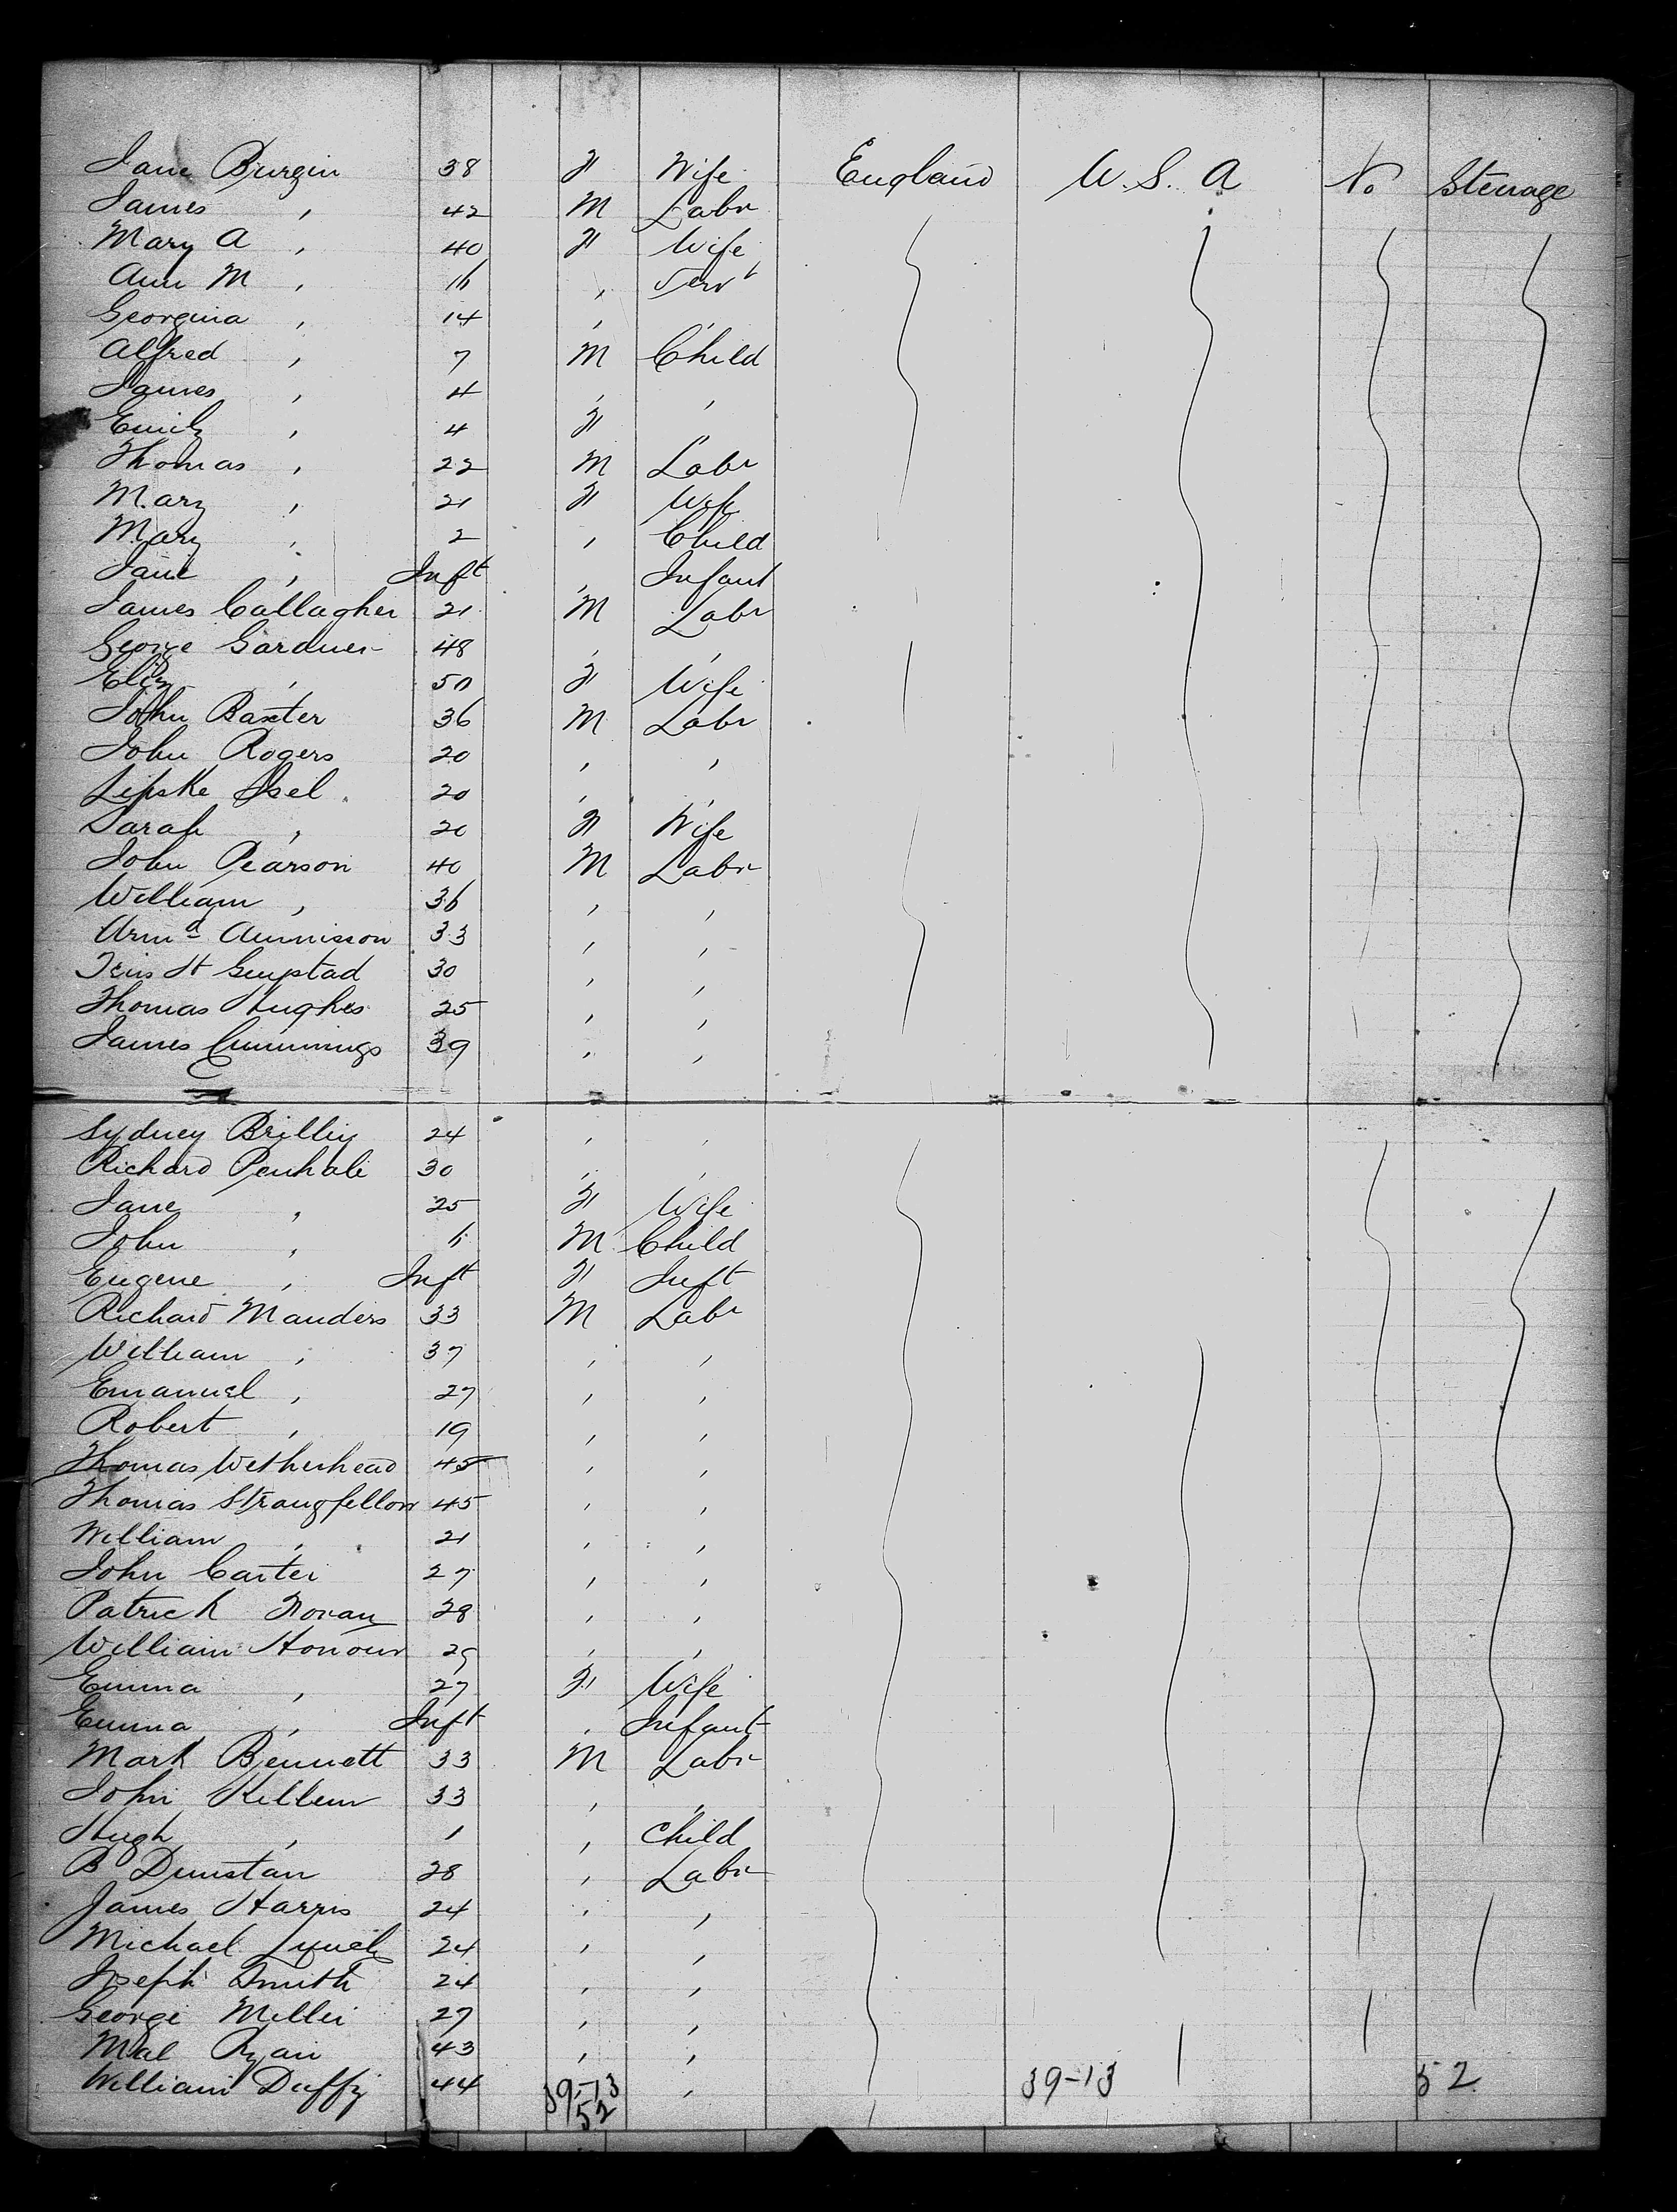 Jane Burgin 38 F Wife England U.S.A No Steerage
James , 42 M Labr
Mary A , 40 F Wife
Ann M , 16 , Servt
Georgina , 14 , ,
Alfred , 7 M Child
James , 4 , ,
Emily , 4 F
Thomas , 22 M Labr
Mary , 21 F Wife
Mary , 2 , Child
Jane , Inft , Infant
James Callagher 21 M Labr
George Gardner 48 , ,
Eliz , 50 F Wife
John Baxter 36 M Labr
John Rogers 20 , ,
Lipske 20 , ,
Sarah , 20 F Wife
John Pearson 40 M Labr
William , 36 , ,
33 , ,
30 , ,
Thomas Hughes 25 , ,
James Cummings 39 , ,
Sydney 24 , ,
Richard Penhale 30 , ,
Jane , 25 F Wife
John , M Child
Eugene , Inft F Inft
Richard Manders 33 M Labr
William , 37 , ,
Emanuel , 27 , ,
Robert , 19 , ,
Thomas Wetherhead 45 , ,
Thomas Strangfellow 45 , ,
William , 21 , ,
John Carter 27 , ,
Patrick 28 , ,
William Honour 29 , ,
Emma , 27 F Wife
Emma , Inft , Infant
Mark Bennett 33 M Labr
John Killeen 33 , ,
Hugh , 1 , Child
B Dunstan 28 , Labr
James Harris 24 , ,
Michael Lynch 24 , ,
Joseph Smith 24 , ,
George Miller 27 , ,
Mal Ryan 43 , ,
William Duffy 44 39-13 , 39-13 52
52